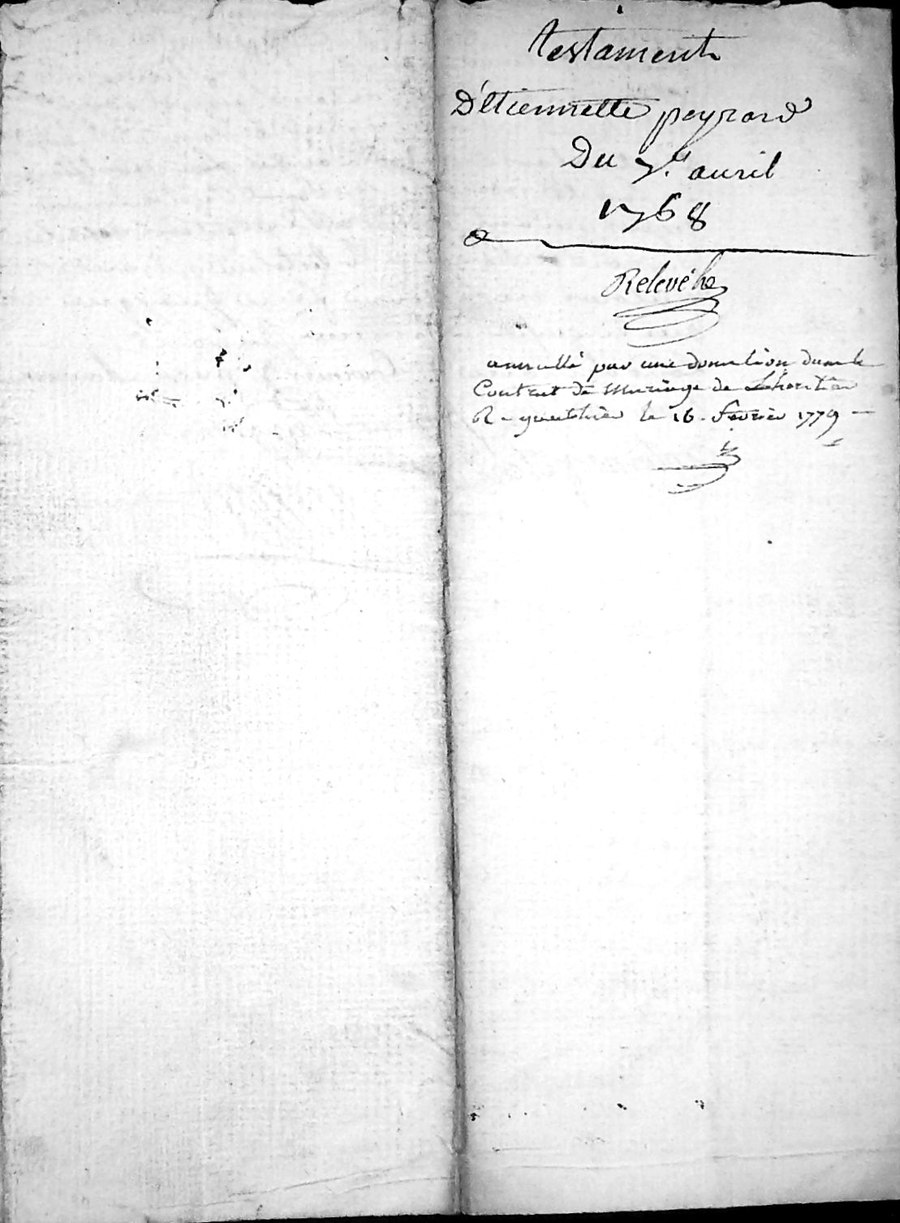 testament
D'Etiennette peyrard
Du 7.e avril
1768
Relevé
annullé par une donation dans le
Contrat de Mariage de
R - gauthier le 16 - fevrier 1779 -